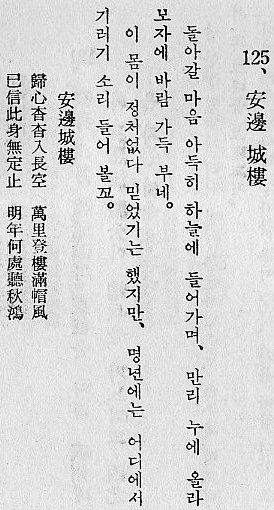 125、安邊城樓
돌아갈 마음 아득히 하늘에 들어가며、 만리 누에 올라
모자에 바람 가득 부네。
이 몸이 정처없다 믿었기는 했지만、 명년에는 어디에서
기러기 소리 들어 볼꼬。
安邊城樓
歸心杳杳入長空 萬里登樓滿帽風
已信此身無定止 明年何處聽秋鴻